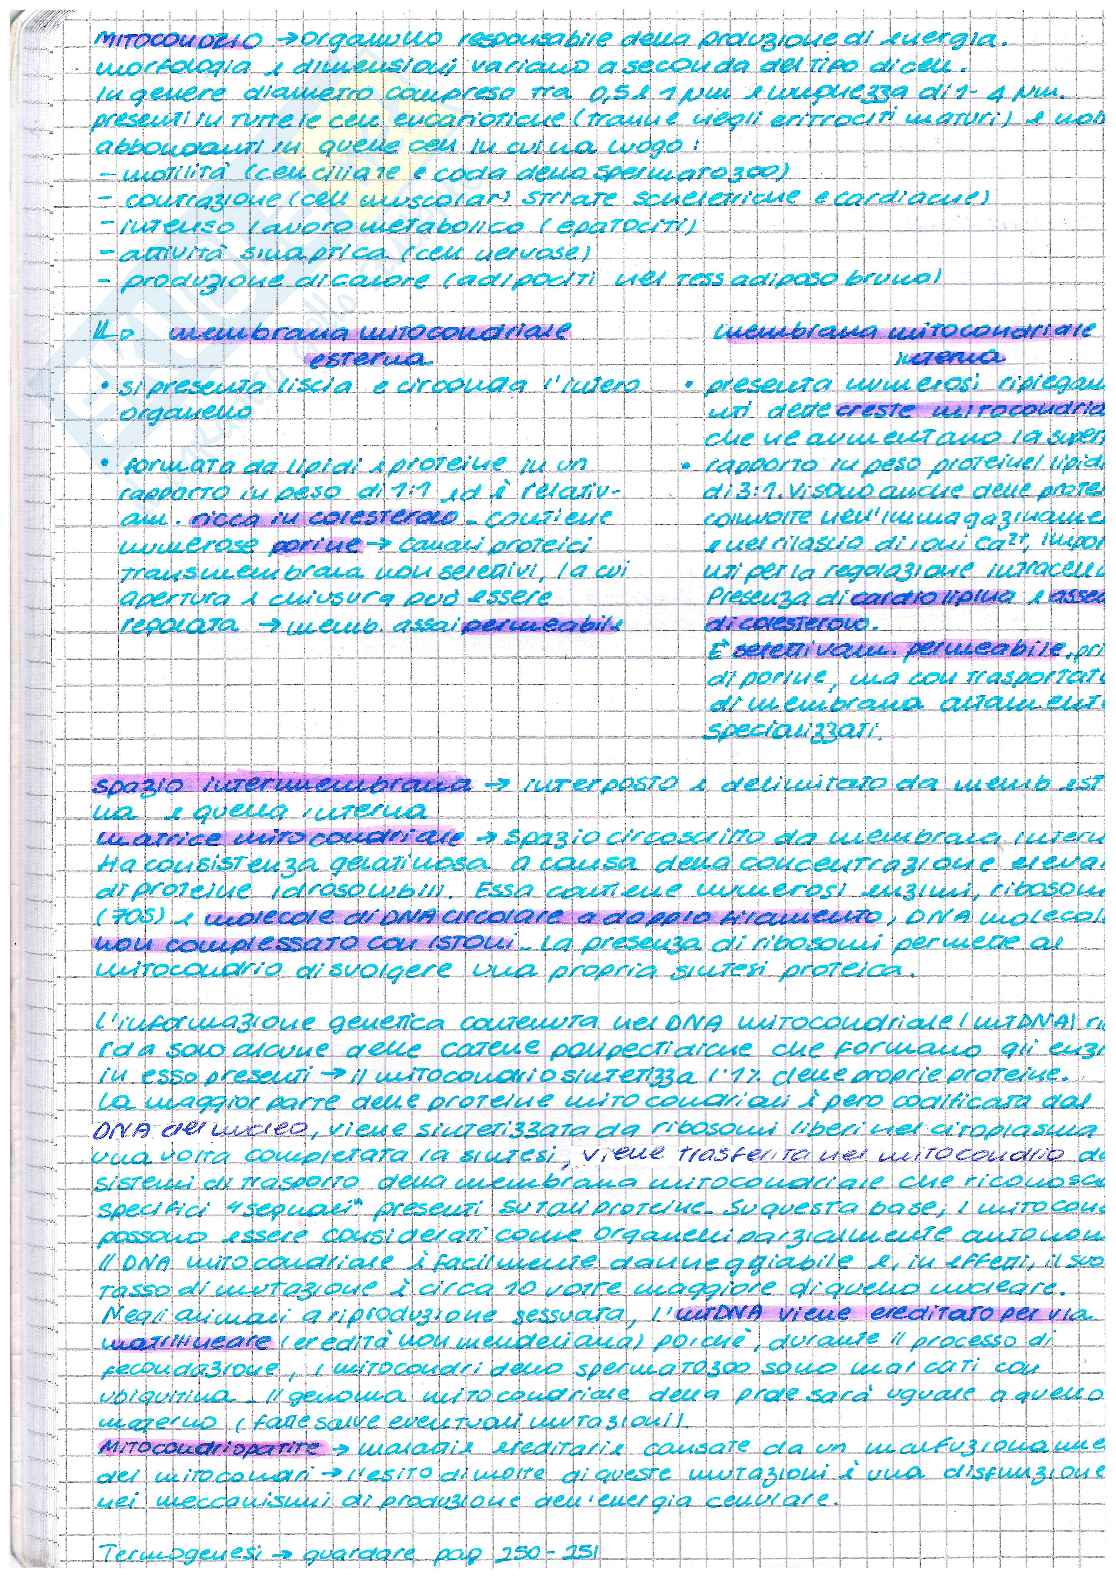 MITOCONDRIO → organulo responsabile della produzione di energia.
morfologia e dimensioni variano a seconda del tipo di cell.
In genere diametro compreso tra 0,5 e 1 μm e lunghezza di 1-4 μm.
presenti in tutte le cell eucariotiche (tranne negli eritrociti maturi) e mol
abbondanti in quelle cell in cui ha luogo:
- motilità (cell ciliate e coda dello spermatozoo)
- contrazione (cell muscolari striate scheletriche e cardiache)
- intenso lavoro metabolico (epatociti)
- attività sinaptica (cell nervose)
- produzione di calore (adipociti nel tess adiposo bruno)
membrana mitocondriale
esterna
• si presenta liscia e circonda l'intero
organello
• formata da lipidi e proteine in un
rapporto in peso di 1:1 ed è relativ-
am. ricca in colesterolo. Contiene
numerose porine → canali proteici
transmembrana non selettivi, la cui
apertura e chiusura può essere
regolata → memb. assai permeabile
membrana mitocondriale
interna
• presenta numerosi ripiegam
nti dette creste mitocondria
che ne aumentano la super
• rapporto in peso proteine/lipid
di 3:1. Vi sono anche delle prote
coinvolte nell'immagazziname
e nel rilascio di ioni Ca²⁺, impor
nti per la regolazione intracell
Presenza di cardiolipina e asse
di colesterolo.
È selettivam. permeabile, pri
di porine, ma con trasportat
di membrana altament
specializzati.
Spazio intermembrana → interposto e delimitato da memb est
na e quella interna
matrice mitocondriale → spazio circoscritto da membrana intern
Ha consistenza gelatinosa a causa della concentrazione eleva
di proteine idrosolubili. Essa contiene numerosi enzimi, ribosom
(70S) e molecole di DNA circolare a doppio filamento, DNA molecol
non complessato con istoni. La presenza di ribosomi permette al
mitocondrio di svolgere una propria sintesi proteica.
L'informazione genetica contenuta nel DNA mitocondriale (mtDNA) ri
rda solo alcune delle catene polipeptidiche che formano gli enz
in esso presenti → il mitocondrio sintetizza l'1% delle proprie proteine.
La maggior parte delle proteine mitocondriali è però codificata dal
DNA del nucleo, viene sintetizzata da ribosomi liberi nel citoplasma
una volta completata la sintesi, viene trasferita nel mitocondrio da
sistemi di trasporto della membrana mitocondriale che riconosc
specifici "segnali" presenti su tali proteine. Su questa base, i mitocon
possono essere considerati come organelli parzialmente autonom
Il DNA mitocondriale è facilmente danneggiabile e, in effetti, il suo
tasso di mutazione è circa 10 volte maggiore di quello nucleare.
Negli animali a riproduzione sessuata, l'mtDNA viene ereditato per via
matrilineare (eredità non mendeliana) poichè, durante il processo di
fecondazione, i mitocondri dello spermatozoo sono marcati con
ubiquitina. Il genoma mitocondriale della prole sarà uguale a quello
materno (fatte salve eventuali mutazioni).
Mitocondriopatite → malattie ereditarie causate da un malfunzioname
dei mitocondri → l'esito di molte di queste mutazioni è una disfunzione
nei meccanismi di produzione dell'energia cellulare.
Termogenesi → guardare pag 250-251